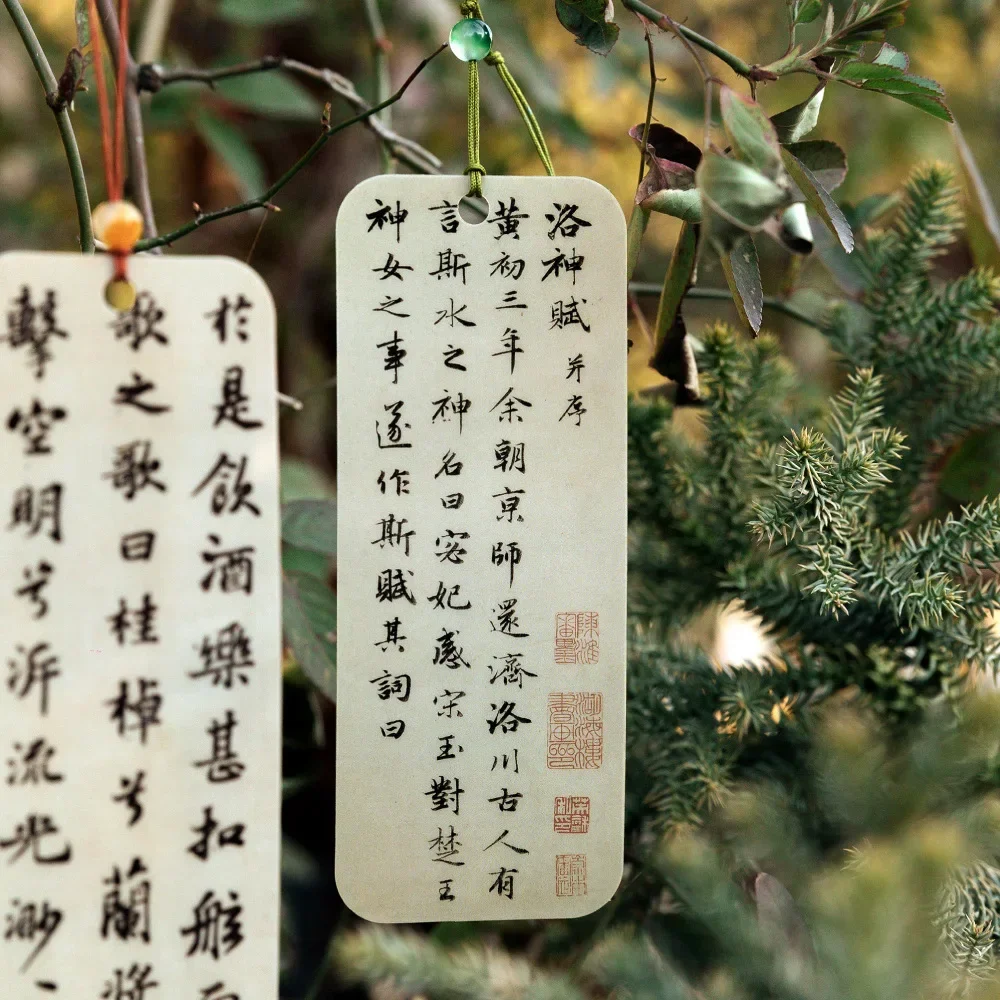 洛神賦 并序
黄初三年余朝京師還濟洛川古人有
言斯水之神名曰宓妃感宋玉對楚王
神女之事遂作斯賦其詞曰
於是飲酒樂甚扣舷
歌之歌曰桂棹兮蘭
擊空明兮泝流光渺